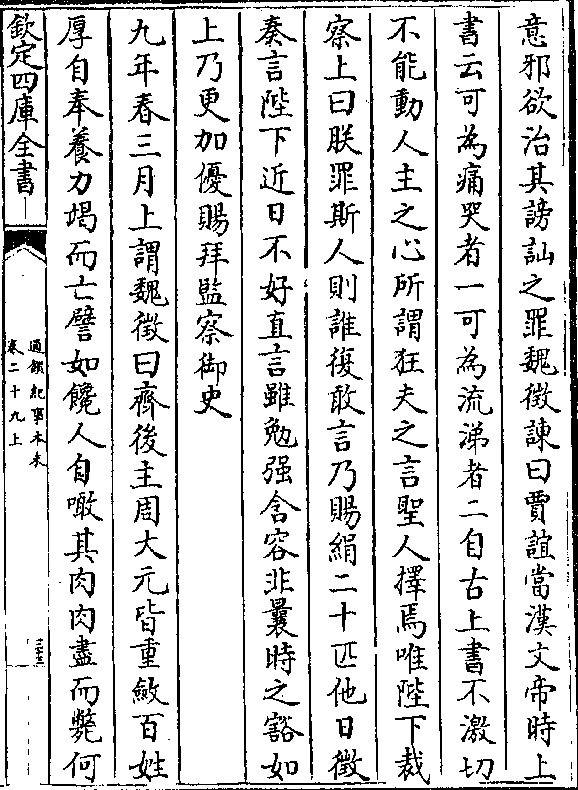 意邪欲治其謗訕之罪魏徴諫曰賈誼當漢文帝時上
書云可為痛哭者一可為流涕者二自古上書不激切
不能動人主之心所謂狂夫之言聖人擇焉唯陛下裁
察上曰朕罪斯人則誰復敢言乃賜絹二十匹他日徴
奏言陛下近日不好直言雖勉强含容非曩時之豁如
上乃更加優賜拜監察御史
九年春三月上謂魏徴曰齊後主周天元皆重斂百姓
厚自奉養力竭而亡譬如饞人自噉其肉肉盡而斃何
欽定四庫全書
通鑑紀事本末
卷二十九上